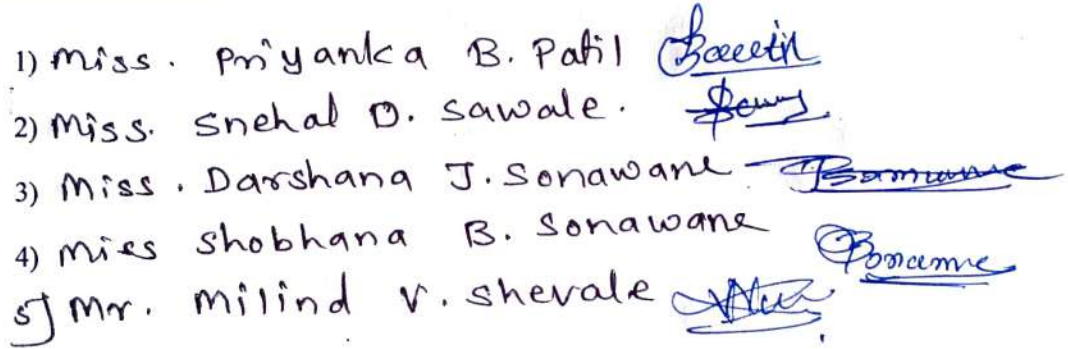 1) Miss. Priyanka B. Patil
2) Miss. Snehal D. Sawale.
3) Miss. Darshana J. Sonawane
4) Miss Shobhana B. Sonawane
5] Mr. Milind V. Shevale